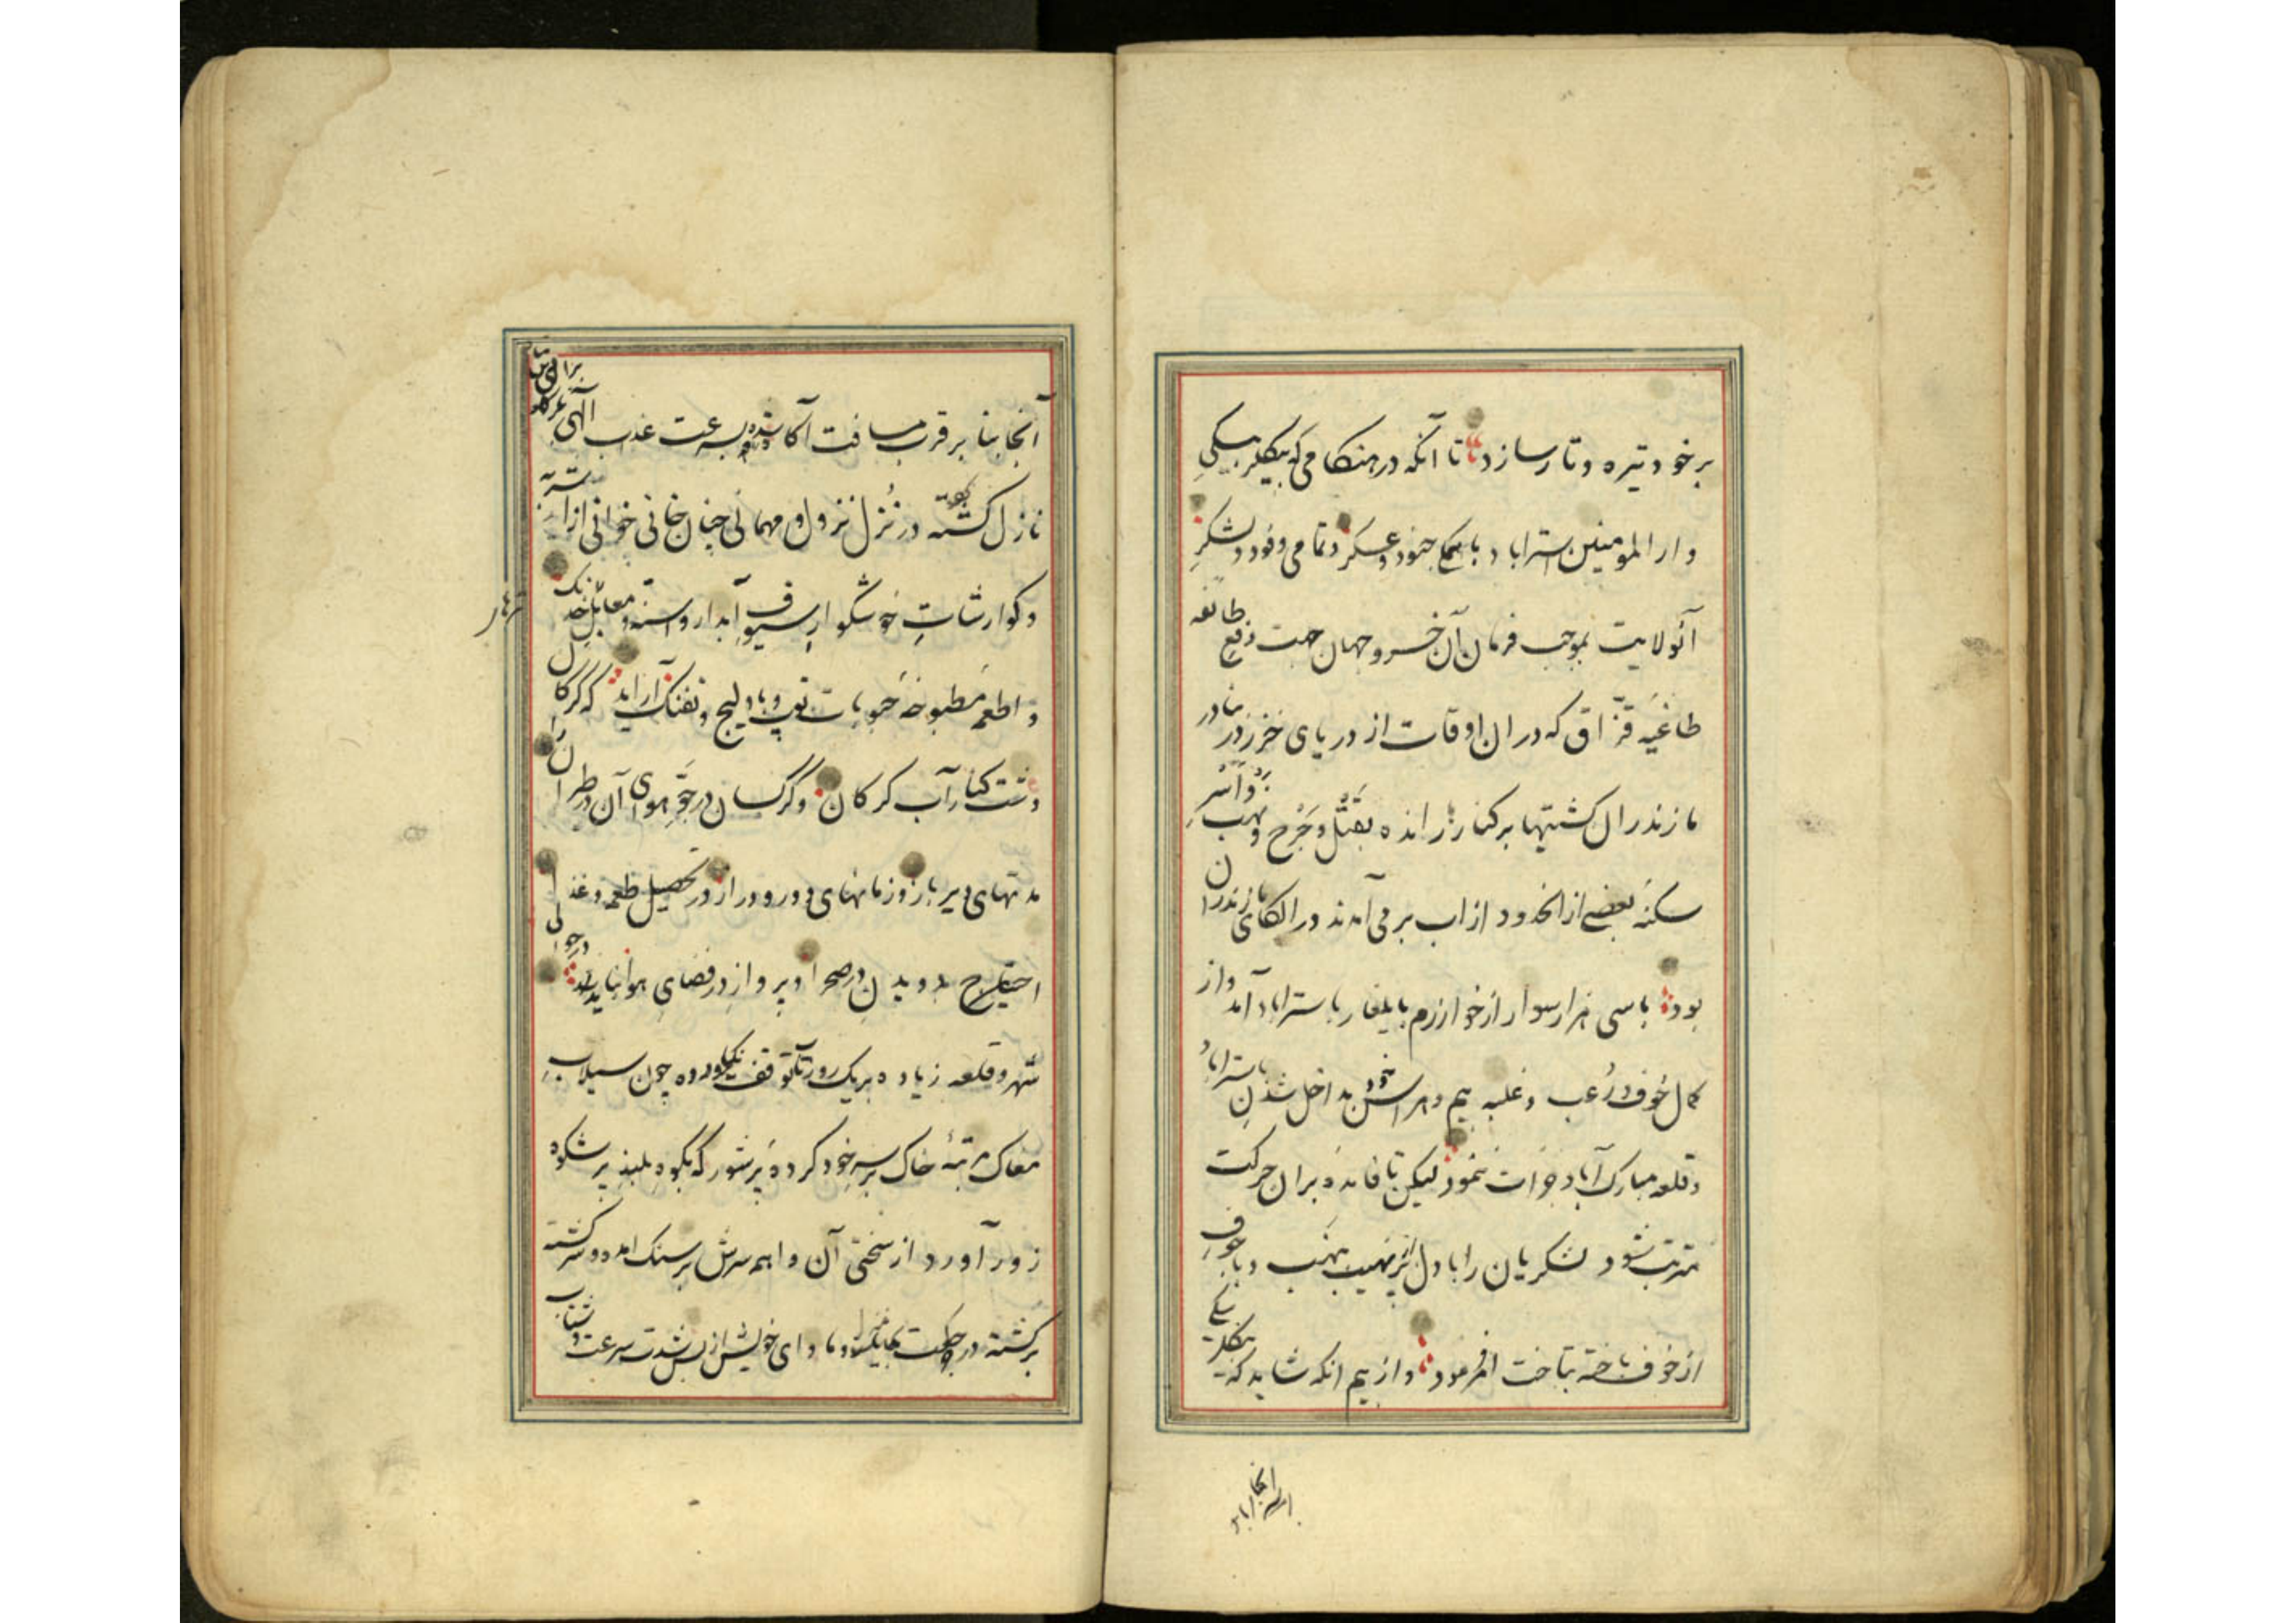 برخود تیره و تار سازد تا آنکه در هنکامی که بیکلربیکی
دار المومنین استراباد با همکی جنود و عسکر و تمامی وفود و لشکر
آنولایت بموجب فرمان آن خسرو جهان جهت دفع طائفه
طاغیه قزاق که در ان اوقات از دریای خزر در
مازندران کشتیها بر کنار رانده بقتل و جرح و نهب و اسر
سکنه بعضی از انحدود از اب بر می آمدند در الکای مازندران
بود با سی هزار سوار از خوارزم بایلغار باستراباد آمد و از
کمال خوف و رعب و غلبه بیم و هراس خود بداخل شدن استراباد
و قلعه مبارک آباد جرات ننمود لیکن تا فائده بران حرکت
مترتب شود لشکریان را با دل پر نهیب بنهب و
از خوف باخته بتاخت امر فرمود و از بیم انکه شاید که بیکلربیکی
آنجا بنا بر قرب مسافت آکاه شده بسرعت عذاب الهی
نازل کشته در نزل نزول و مهمانی چنان خانی خوانی از
و کوارشات خوشکوار سیوف آبدار و اسنه و خدنک
و اطعمه مطبوخه حبوبات توپ و بادلیج و تفنک آراید که کرکان
دشت کنار آب کرکان و کرکسان در جو هوای آن در طیران
مدتهای دیر باز و زمانهای دور و دراز در تحصیل طعمه و غذا
احتیاج بدویدن در صحرا و پرواز در فضای هوا نیابند در حوالی
شهر و قلعه زیاده بر یک روز توقف نکرده چون سیلاب
مغاک مرتبۀ خاک بر سر خود کرده پر شور که بکوه بلند پر شکوه
زور آورد از سختی آن واهمه سرش بر سنک امده و سرکشته
برکشته در حرکت بجایکاه و ماوای خویش از بس شدت سرعت و شتاب